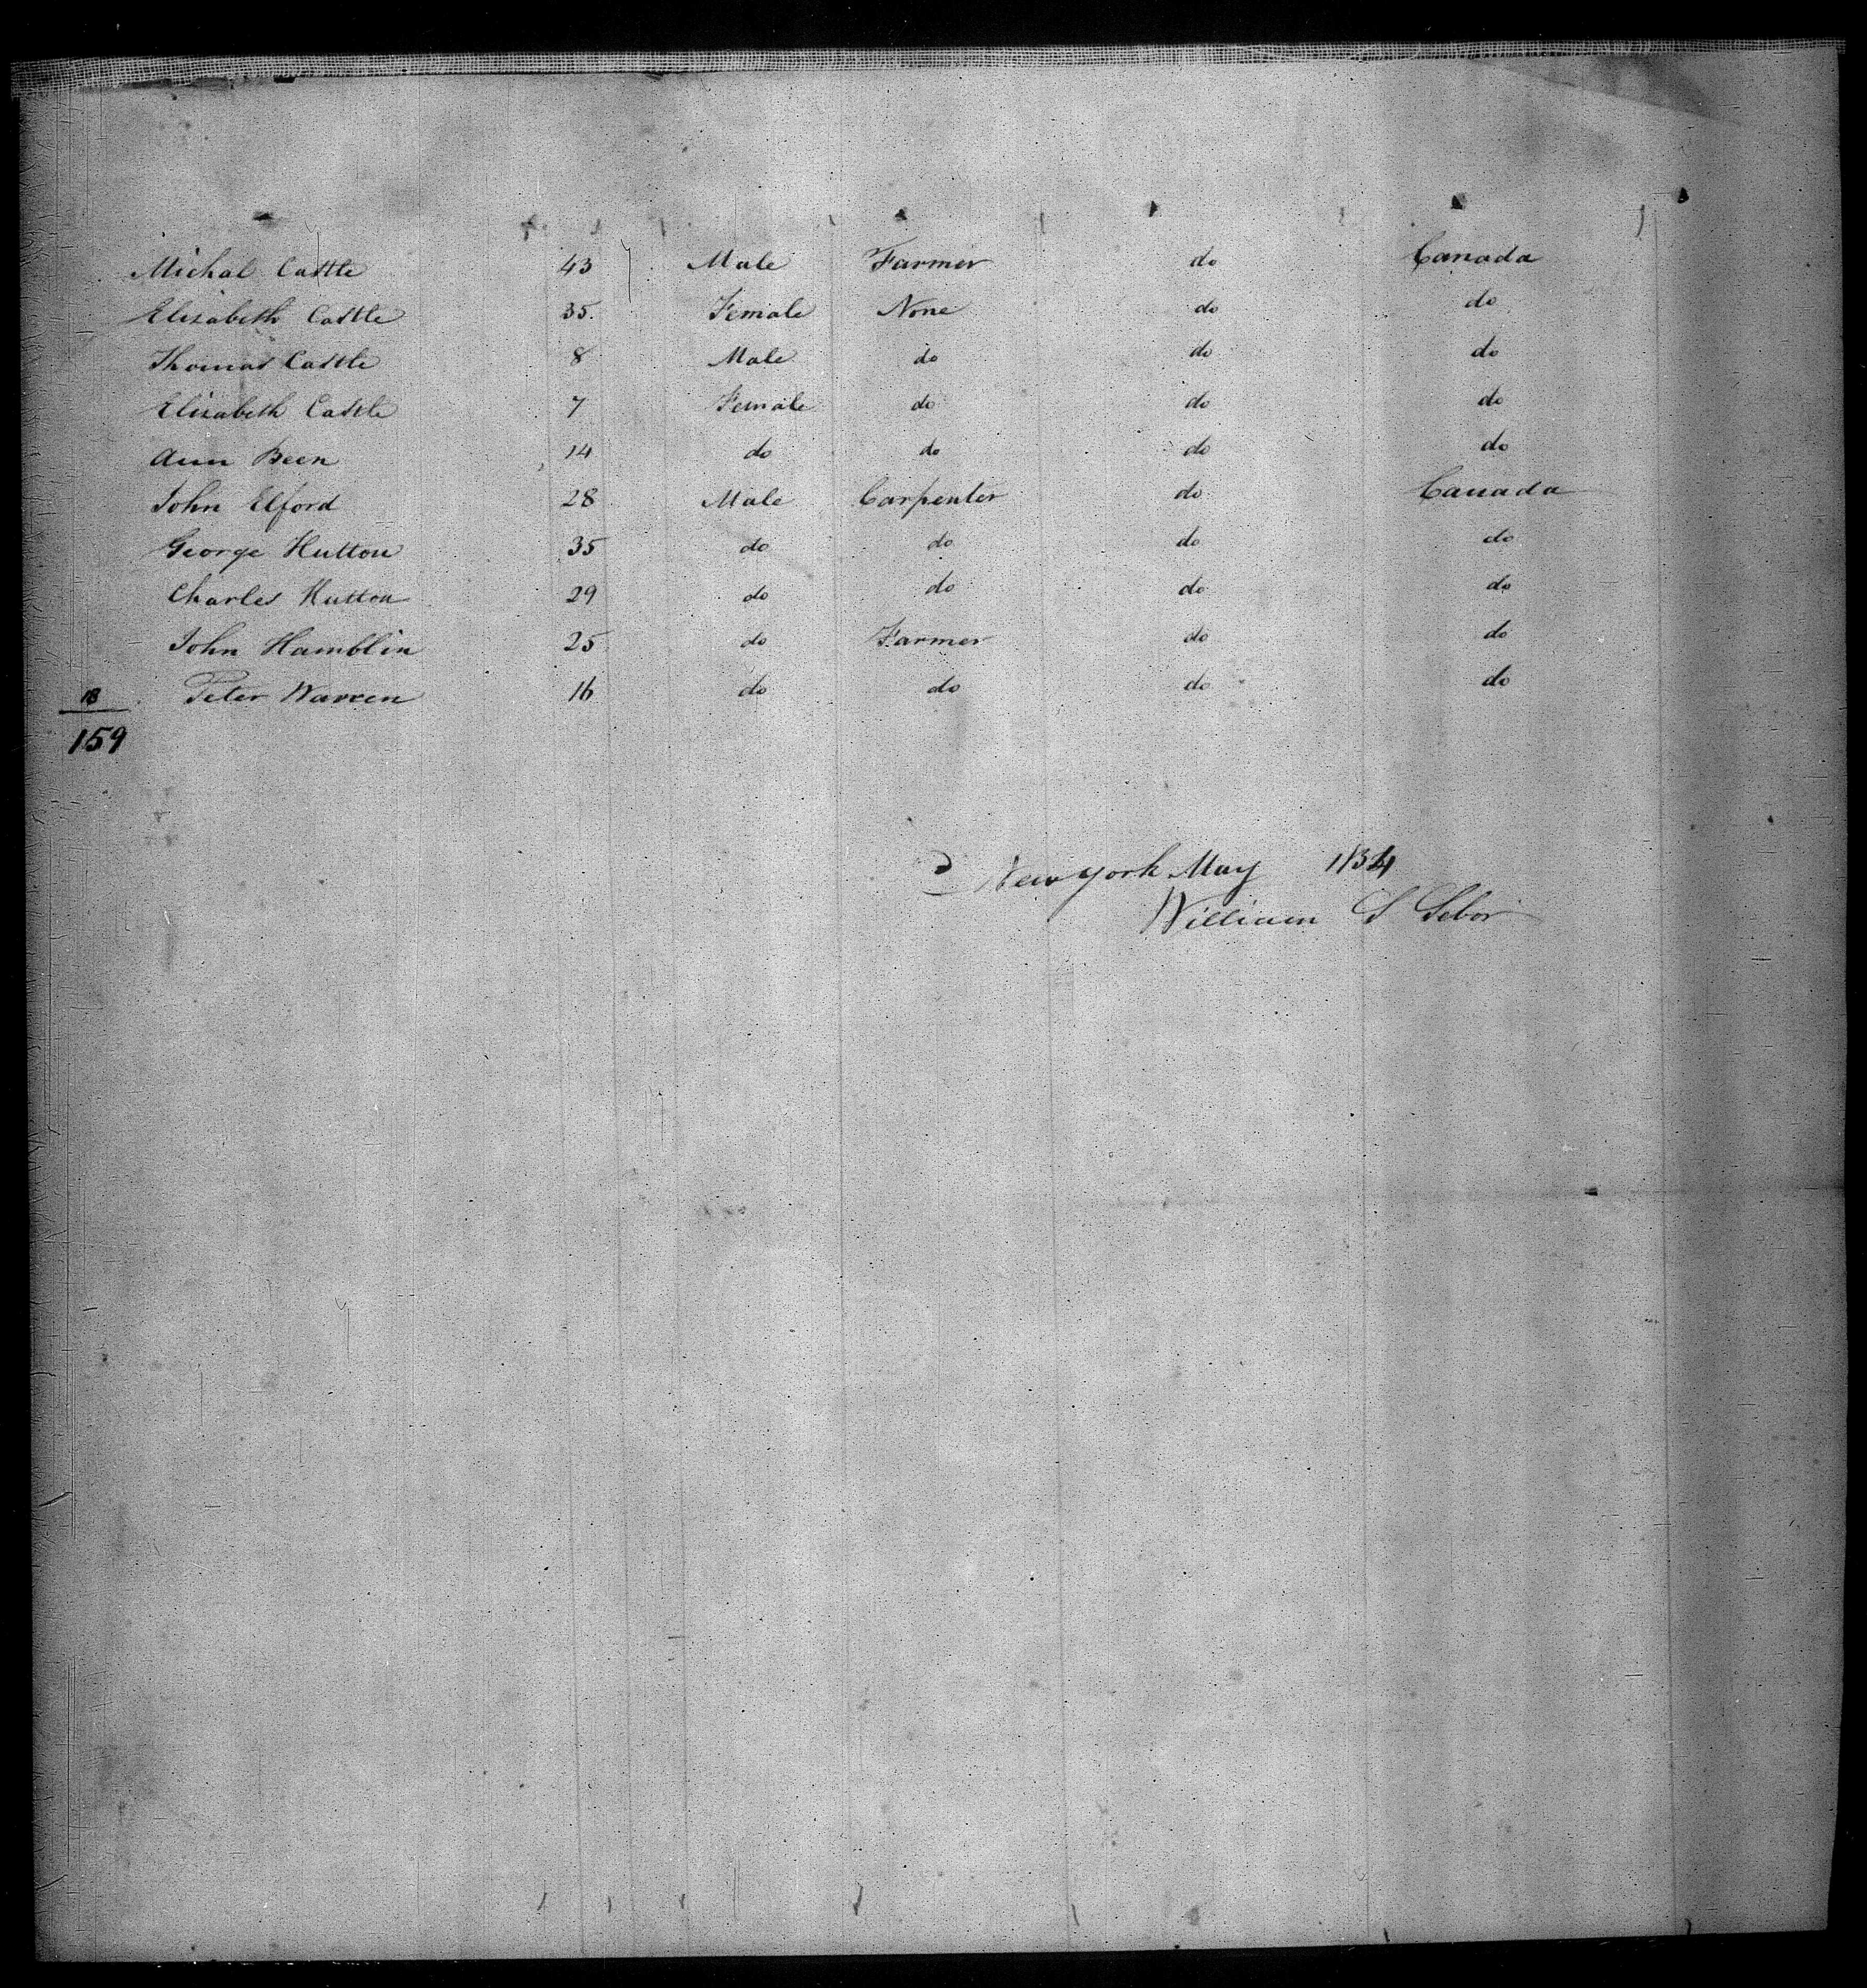 Michal Castle 43 Male Farmer do Canada
Elizabeth Castle 35 Female None do do
Thomas Castle 8 Male do do do
Elizabeth Castle 7 Female do do do
Ann Been 14 do do do do
John Elford 28 Male Carpenter do Canada
George Hutton 35 do do do do
Charles Hutton 29 do do do do
John Hamblin 25 do Farmer do do
Peter Warren 16 do do do do
159
New York May 1834
William S Sebor